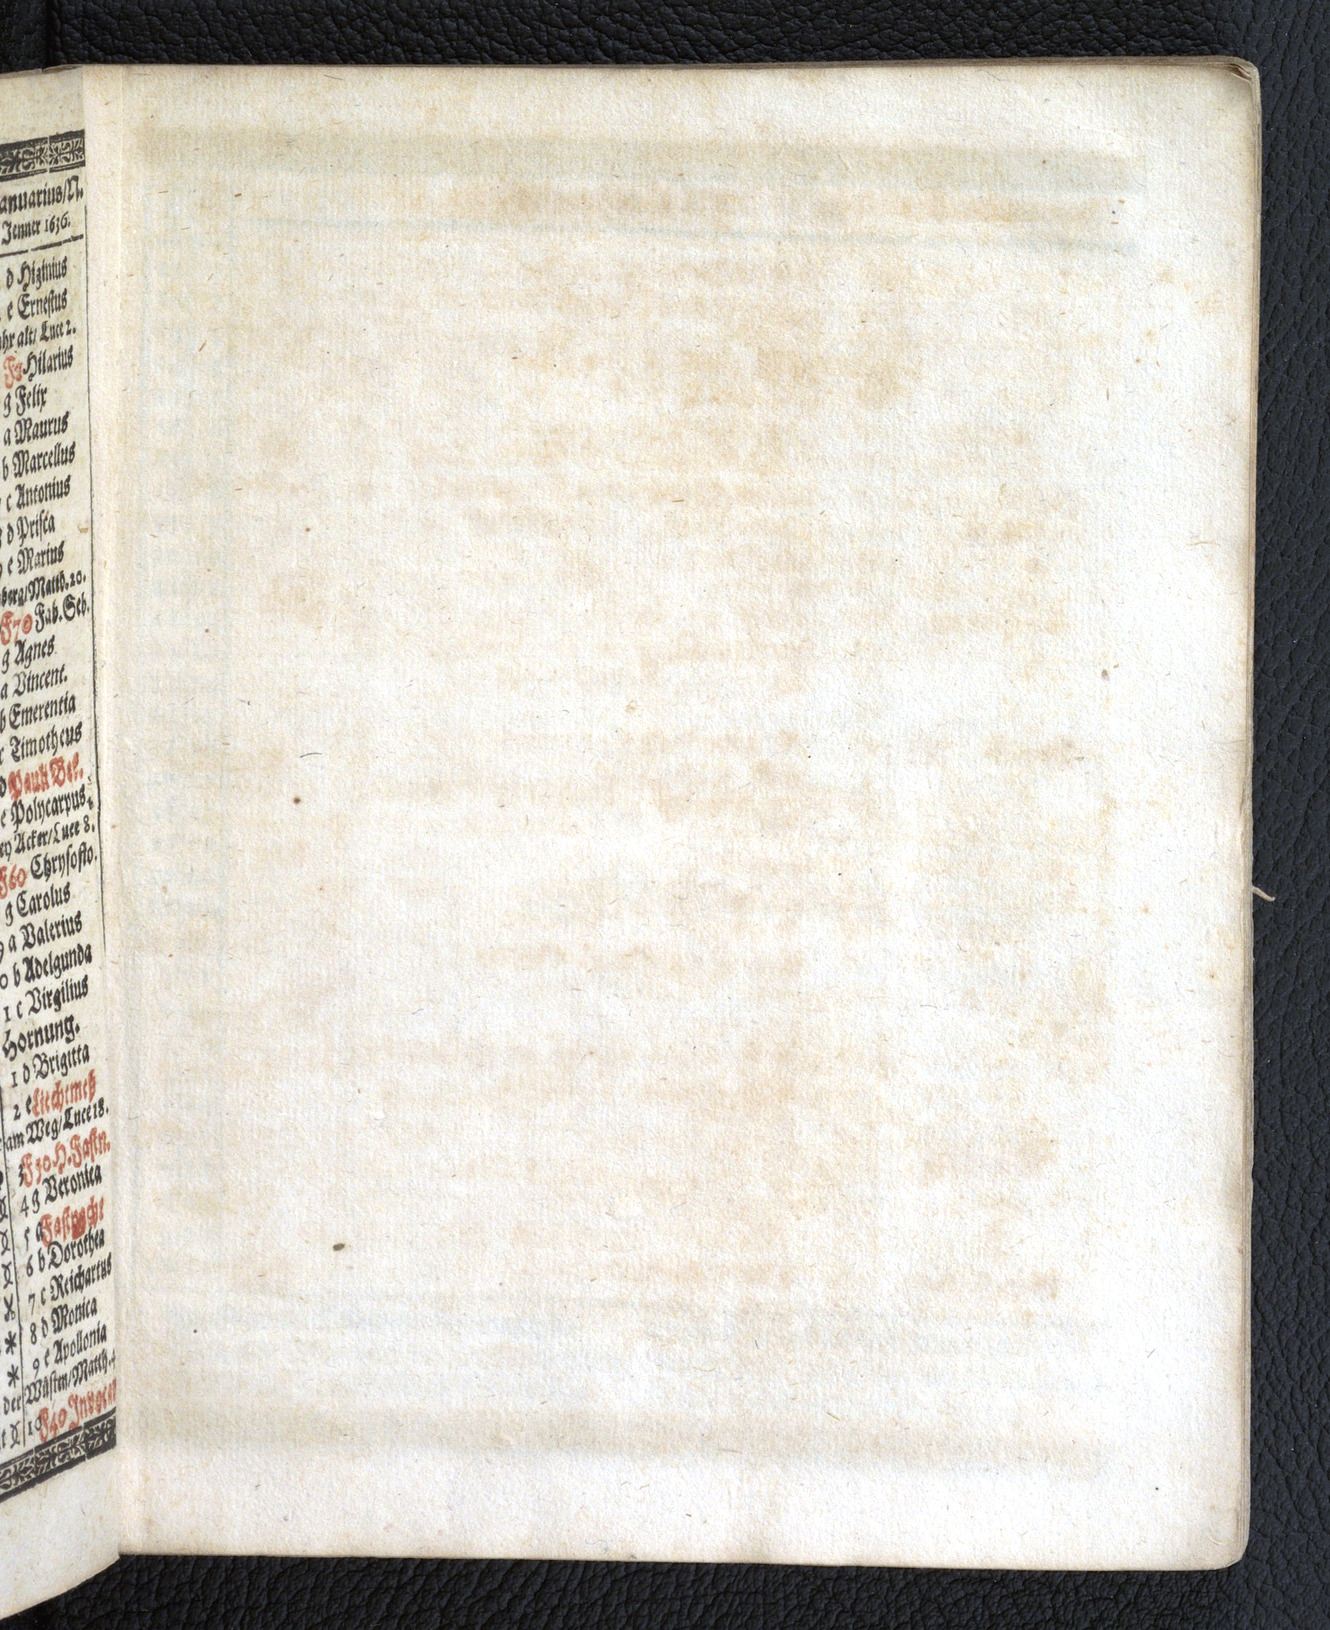 anuarius/N.
Jenner 1636.
d Higinius
e Ernestus
ahr alt/Luce 2.
F3 Hilarius
g Felix
a Maurus
b Marcellus
c Antonius
d Prisca
e Marius
berg/Matth.20.
F70 Fab. Seb.
g Agnes
a Vincent.
b Emerentia
c Timotheus
d Pauli Bek.
e Polycarpus
ey Acker/Luce 8.
F60 Chrysosto.
g Carolus
9 a Valerius
0 b Adelgunda
1 c Virgilius
Hornung.
1 d Brigitta
2 e Liechtmeß
am Weg/Luce 18.
3 F50 H. Fastn.
4 g Veronica
5 a Fastnacht
6 b Dorothea
7 c Reichartus
8 d Monica
9 e Apollonia
der Wüsten/Matth.4
10 F40 Invocav